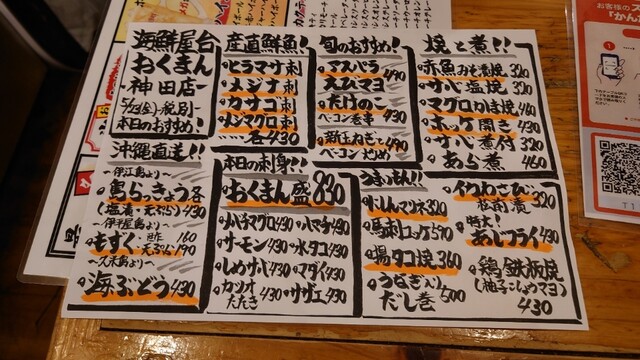 海鮮屋台
おくまん
神田店
5/2(金)-税別-
本日のおすすめ!
産直鮮魚!
・ヒラマサ刺
・メジナ刺
・カサゴ刺
・メジマグロ刺
各430
旬のおすすめ!
・アスパラ
えびマヨ 490
・たけのこ
ベーコン巻串
・新玉ねぎ
ベーコン炒め 490
焼と煮!!
・赤魚みそ漬焼 320
・サバ塩焼 320
・マグロかま焼
・ホッケ開き 430
・サバ煮付 320
・あら煮 460
沖縄直送!!
〜伊江島より〜
・島らっきょう各
(塩漬・天ぷら)430
〜伊平屋島より〜
・もずく・酢 160
天ぷら190
〜久米島より〜
・海ぶどう430
本日の刺身!!
・おくまん盛830
・メバチマグロ430
・ハマチ430
・サーモン430
・水タコ430
・しめサバ430
・マダイ430
・カツオたたき430
・サザエ430
うまいもん!!
・れんこんマリネ320
・馬刺ユッケ570
・揚タコ焼360
・うなぎ入り
だし巻 500
・イカわさび
320
特大!
・あじフライ430
・鶏鉄板焼
(柚子こしょうマヨ)
430